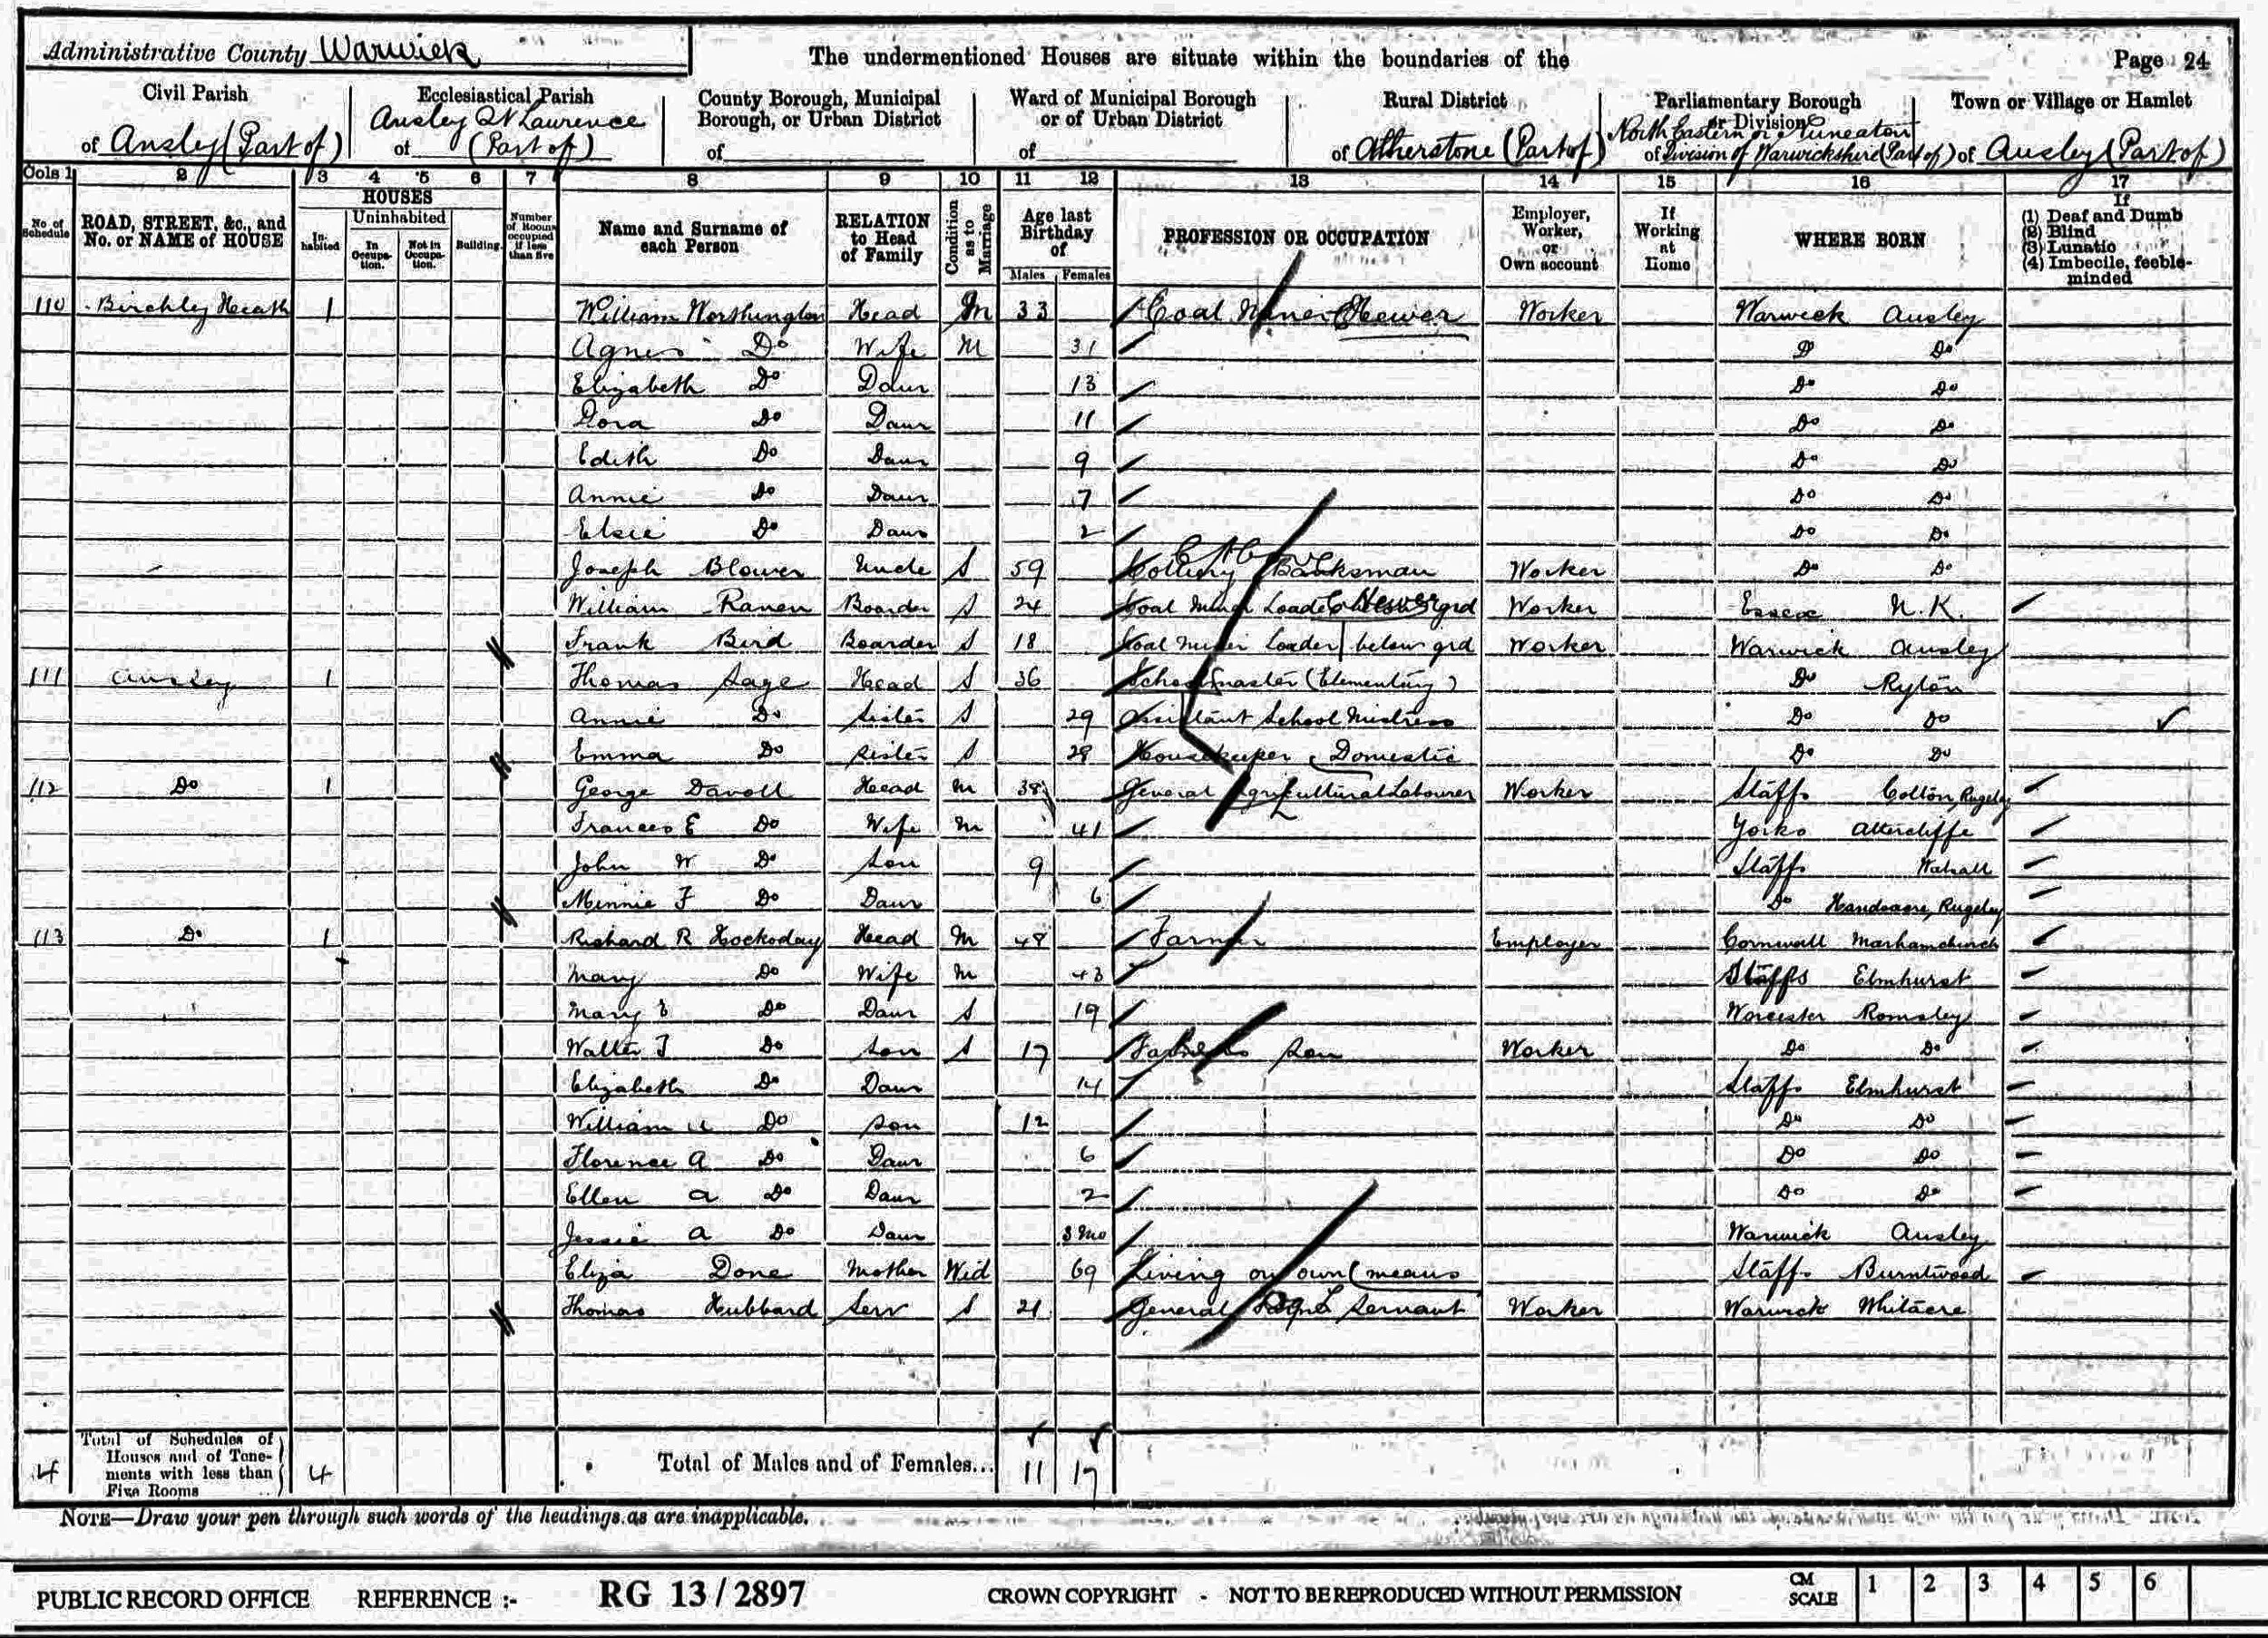 Administrative County Warwick
The undermentioned Houses are situate within the boundaries of the
Page 24
Civil Parish of Ansley (Part of)
Ecclesiastical Parish of Ansley St Laurence (Part of)
County Borough, Municipal Borough, or Urban District of
Ward of Municipal Borough or of Urban District of
Rural District of Atherstone (Part of)
Parliamentary Borough or Division of North Eastern or Nuneaton Division of Warwickshire (Part of)
Town or Village or Hamlet of Ansley (Part of)
Cols 1 2 3 4 5 6 7 8 9 10 11 12 13 14 15 16 17
No. of Schedule
ROAD, STREET, &c., and No. or NAME of HOUSE
HOUSES
Inhabited
Uninhabited
In Occupation.
Not in Occupation.
Building.
Number of Rooms occupied if less than five
Name and Surname of each Person
RELATION to Head of Family
Condition as to Marriage
Age last Birthday of
Males Females
PROFESSION OR OCCUPATION
Employer, Worker, or Own account
If Working at Home
WHERE BORN
If
(1) Deaf and Dumb
(2) Blind
(3) Lunatic
(4) Imbecile, feeble-minded
110 Birchley Heath 1 William Worthington Head M 33 Coal Miner Hewer Worker Warwick Ansley
Agnes Do Wife M 31 Do Do
Elizabeth Do Daur 13 Do Do
Flora Do Daur 11 Do Do
Edith Do Daur 9 Do Do
Annie Do Daur 7 Do Do
Elsie Do Daur 2 Do Do
Joseph Blower Uncle S 59 Colliery Banksman Worker Do Do
William Raven Boarder S 24 Coal Miner Loader Hewer grd Worker Essex N.K.
Frank Bird Boarder S 18 Coal Miner Loader below grd Worker Warwick Ansley
111 Ansley 1 Thomas Sage Head S 36 Schoolmaster (Elementary) Do Ryton
Annie Do Sister S 29 Assistant School Mistress Do Do
Emma Do Sister S 28 Housekeeper Domestic Do Do
112 Do 1 George Davoll Head M 38 General Agricultural Labourer Worker Staffs Colton, Rugeley
Frances E Do Wife M 41 Yorks Attercliffe
John W Do Son 9 Staffs Walsall
Minnie F Do Daur 6 Do Handsacre, Rugeley
113 Do 1 Richard R Hockaday Head M 48 Farmer Employer Cornwall Marhamchurch
Mary Do Wife M 43 Staffs Elmhurst
Mary E Do Daur S 19 Worcester Romsley
Walter J Do Son S 17 Farmers Son Worker Do Do
Elizabeth Do Daur 14 Staffs Elmhurst
William Do Son 12 Do Do
Florence A Do Daur 6 Do Do
Ellen A Do Daur 2 Do Do
Jessie A Do Daur 3 mo Warwick Ansley
Eliza Done Mother Wid 69 Living on own means Staffs Burntwood
Thomas Hubbard Serv S 21 General Servant Worker Warwick Whitacre
4 Total of Schedules of Houses and of Tenements with less than Five Rooms 4 Total of Males and of Females... 11 17
NOTE—Draw your pen through such words of the headings as are inapplicable.
PUBLIC RECORD OFFICE REFERENCE :- RG 13/2897 CROWN COPYRIGHT - NOT TO BE REPRODUCED WITHOUT PERMISSION CM SCALE 1 2 3 4 5 6